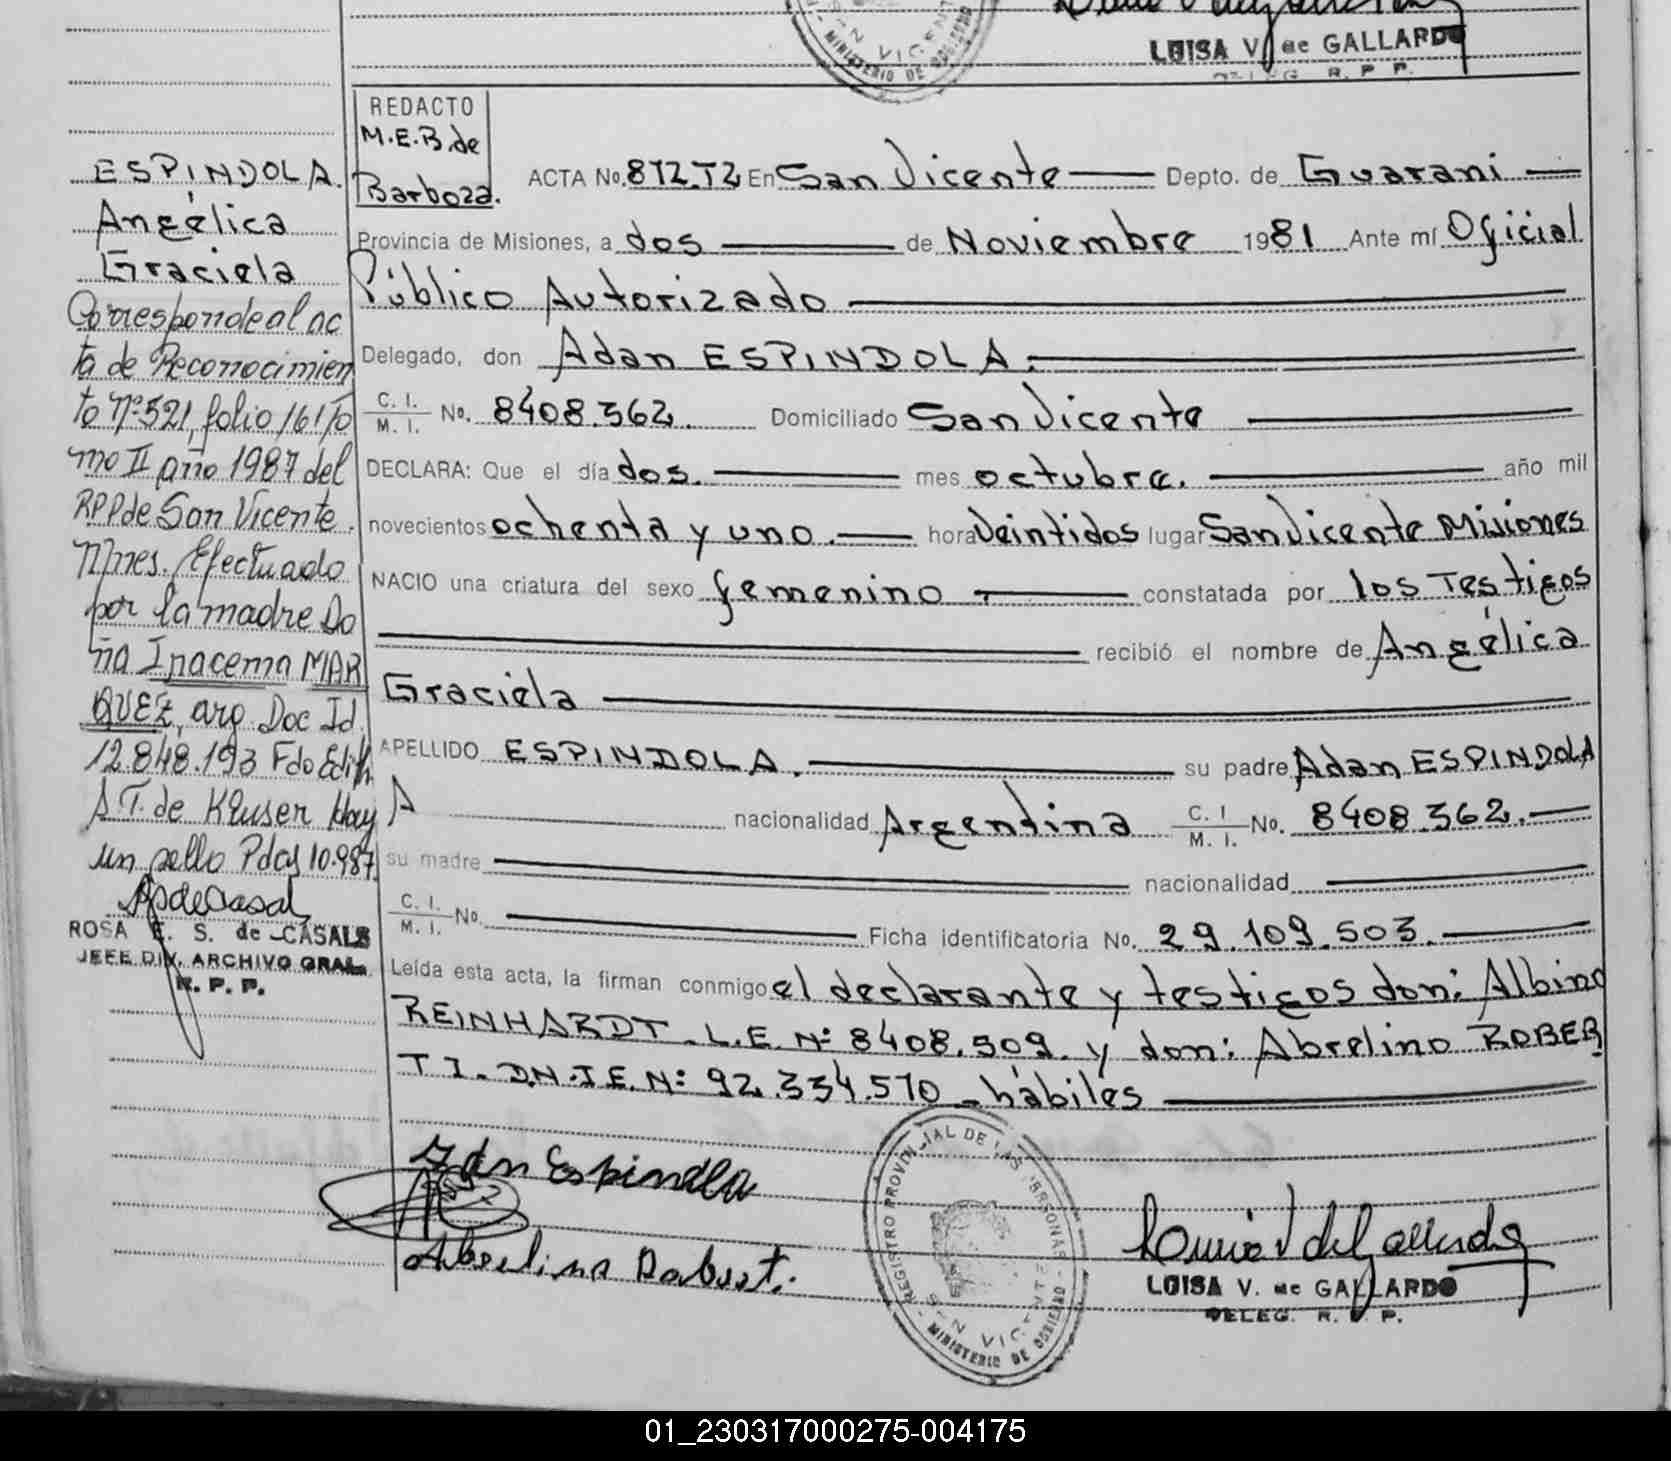 LUISA V. de GALLARDO
DELEG. R. P. P.
SAN VICENTE
MINISTERIO DE GOBIERNO
ESPINDOLA.
Angélica
Graciela
Corresponde al ac
ta de Reconocimien
to Nº 521, folio 161 To
mo II año 1987 del
RPP de San Vicente.
Mnes. Efectuado
por la madre Do
ña Inacema MAR
QUEZ, arg Doc Id.
12.848.193 Fdo Edith
S.T. de Kluser Hay
un sello Pdas 10.987
ROSA E. S. de CASALS
JEFE DIV. ARCHIVO GRAL.
R. P. P.
REDACTO
M.E.B. de
Barboza.
ACTA No. 812.T2 En San Vicente Depto. de Guarani
Provincia de Misiones, a dos de Noviembre 1981 Ante mí Oficial
Público Autorizado
Delegado, don Adan ESPINDOLA.
C. I. M. I. No. 8408.362. Domiciliado San Vicente
DECLARA: Que el día dos. mes octubre. año mil
novecientos ochenta y uno. hora Veintidos lugar San Vicente Misiones
NACIO una criatura del sexo femenino constatada por los Testigos
recibió el nombre de Angélica
Graciela
APELLIDO ESPINDOLA. su padre Adan ESPINDOLA
nacionalidad Argentina C. I M. I. No. 8408.362.
su madre nacionalidad
C. I. M. I. No. Ficha identificatoria No. 29.109.503.
Leída esta acta, la firman conmigo el declarante y testigos don: Albino
REINHARDT. L.E. Nº: 8408.509. y don: Abrelino ROBER
TI. D.N.I.E. Nº: 92.334.570 - hábiles
Adan Espindla
REGISTRO PROVINCIAL DE LAS PERSONAS
SAN VICENTE
MINISTERIO DE GOBIERNO
LUISA V. de GALLARDO
DELEG. R. P. P.
01_230317000275-004175